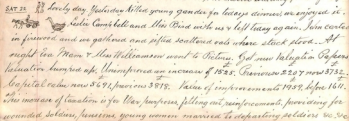 SAT 22 Lovely day Yesterday killed young gander for todays dinner, we enjoyed it
Leslie Campbell and Miss Bird with us & left today again. I in carted
in firewood and we gathered and sifted scattered oats where stack stood. At
night Lea Mann & Miss Williamson went to Pictures. Got new Valuation Papers
Valuation bumped up. Unimproved an increase of 1525. Previous 2207 now 3732.
Capital value now 5691, previous 3818. Value of improvements 1959, before 1611.
The increase of taxation is for War purposes, fitting out reinforcements, providing for
wounded soldiers, pensions, young women married to departing soldiers &c &c